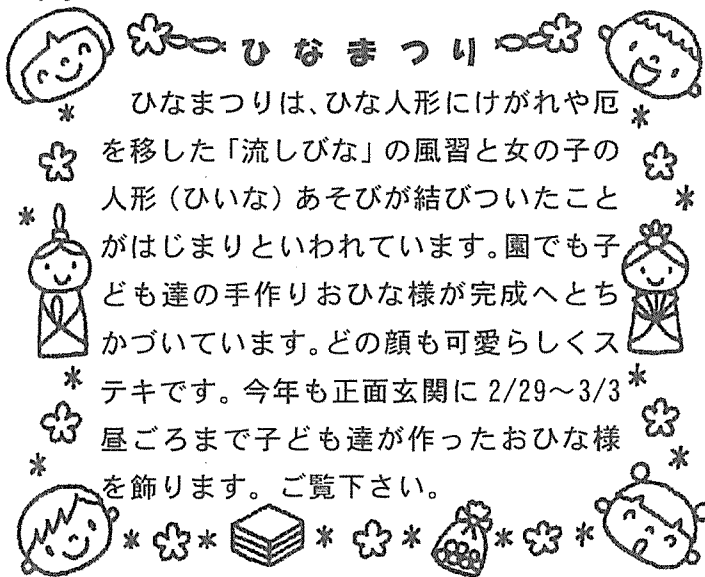 ひなまつり
ひなまつりは、ひな人形にけがれや厄
を移した「流しびな」の風習と女の子の
人形（ひいな）あそびが結びついたこと
がはじまりといわれています。園でも子
ども達の手作りおひな様が完成へとち
かづいています。どの顔も可愛らしくス
テキです。今年も正面玄関に 2/29～3/3
昼ごろまで子ども達が作ったおひな様
を飾ります。ご覧下さい。